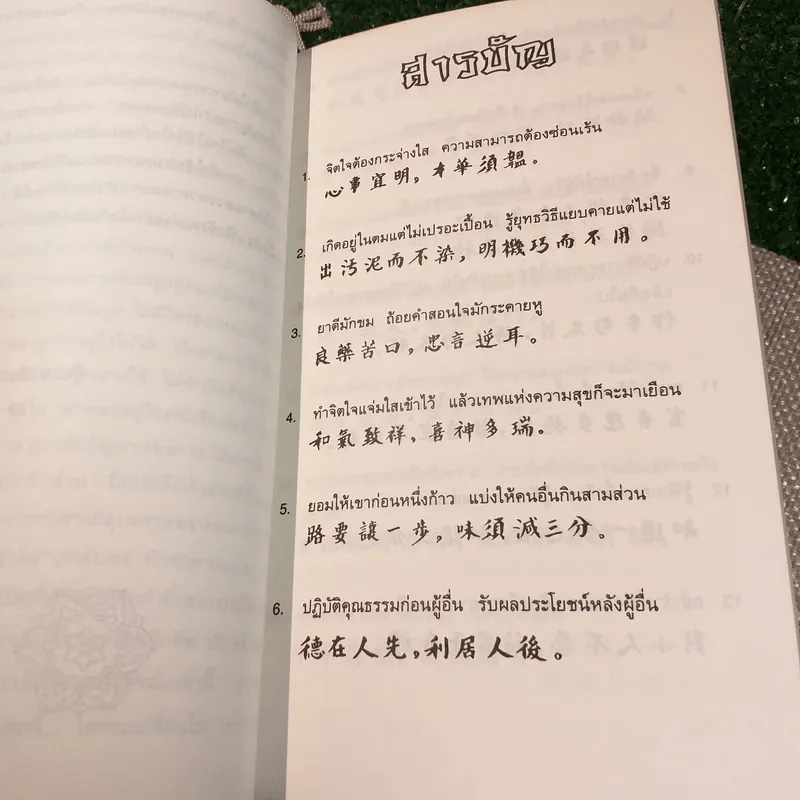 สารบัญ
1. จิตใจต้องกระจ่างใส ความสามารถต้องซ่อนเร้น
心事宜明，才華須韞。
2. เกิดอยู่ในตมแต่ไม่เปรอะเปื้อน รู้ยุทธวิธีแยบคายแต่ไม่ใช้
出汚泥而不染，明機巧而不用。
3. ยาดีมักขม ถ้อยคำสอนใจมักระคายหู
良藥苦口，忠言逆耳。
4. ทำจิตใจแจ่มใสเข้าไว้ แล้วเทพแห่งความสุขก็จะมาเยือน
和氣致祥，喜神多瑞。
5. ยอมให้เขาก่อนหนึ่งก้าว แบ่งให้คนอื่นกินสามส่วน
路要讓一步，味須減三分。
6. ปฏิบัติคุณธรรมก่อนผู้อื่น รับผลประโยชน์หลังผู้อื่น
德在人先，利居人後。